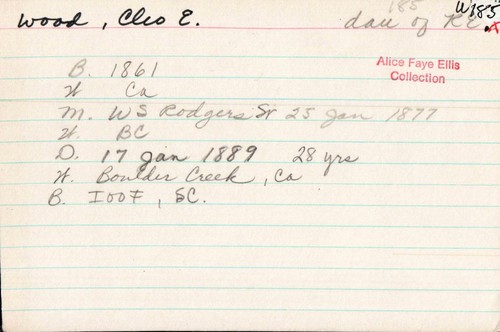 Wood, Cleo E. dau of R.E.
185 W185
A
Alice Faye Ellis
Collection
B. 1861
W Ca
M. WS Rodgers Sr 25 Jan 1877
W. BC
D. 17 Jan 1889 28 yrs
W. Boulder Creek, Ca
B. IOOF, SC.